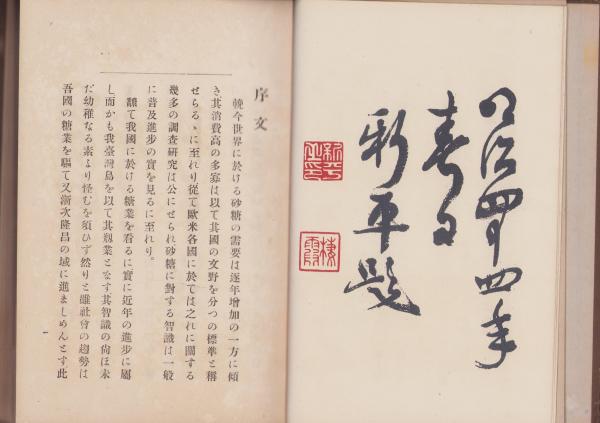 明治四十四年
春日
新平題
新平
之印
棲
霞
序文
輓今世界に於ける砂糖の需要は逐年增加の一方に傾
き其消費高の多寡は以て其國の文野を分つの標準と稱
せらるゝに至れり從て歐米各國に於ては之れに關する
幾多の調查硏究は公にせられ砂糖に對する智識は一般
に普及進步の實を見るに至れり。
飜て我國に於ける糖業を看るに實に近年の進步に屬
し而かも我臺灣島を以て其剏業となす其智識の尙ほ未
だ幼稚なる素より怪むを須ひず然りと雖社會の趨勢は
吾國の糖業を驅て又漸次隆昌の域に進ましめんとす此
一